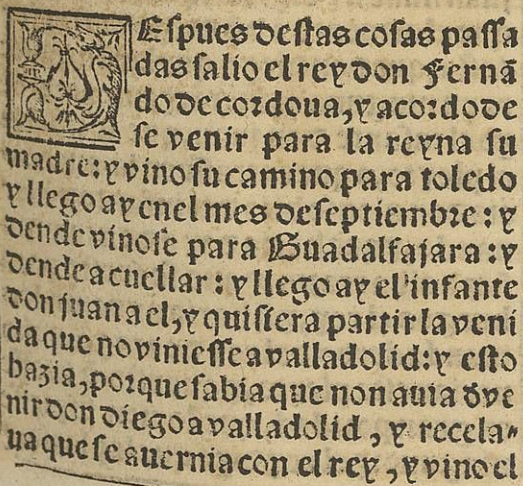 DEspues destas cosas passa
das salio el rey don Fernã
do de cordoua, y acordo de
se venir para la reyna su
madre: y vino su camino para toledo
y llego ay enel mes de septiembre: y
dende vinose para Guadalfajara: y
dende a cuellar: y llego ay el infante
don juan a el, y quisiera partir la veni
da que no viniesse a valladolid: y esto
hazia, porque sabia que non auia d̃ ve
nir don diego a valladolid, y recela-
ua que se auernia con el rey, y vino el